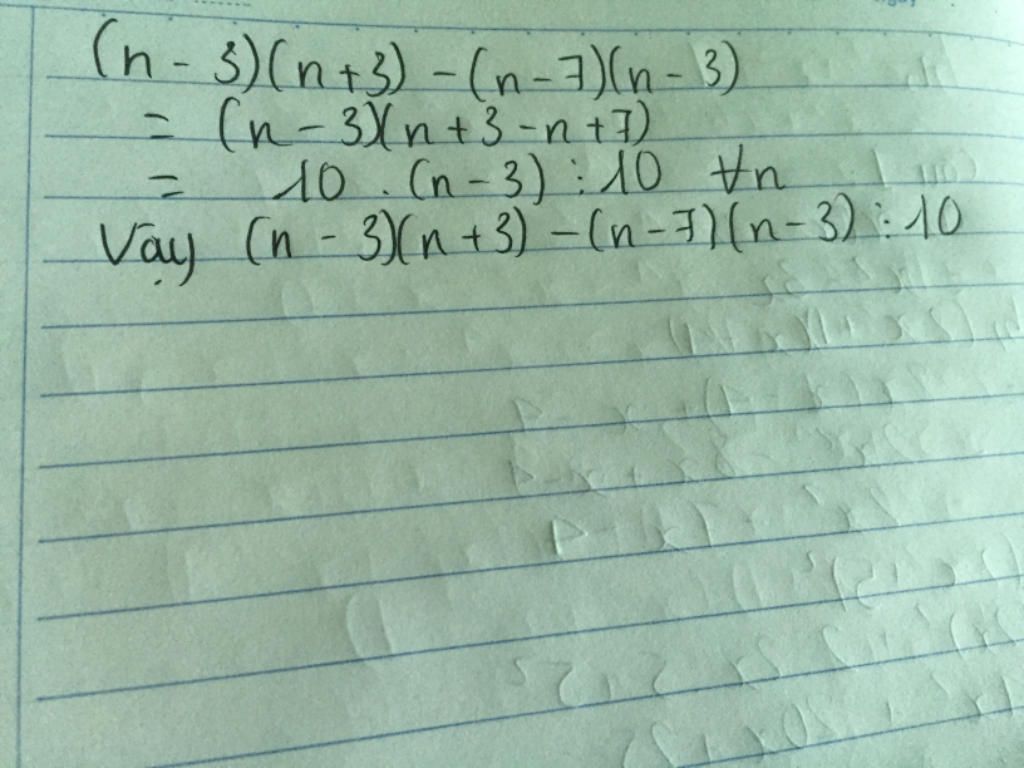 (n - 3)(n + 3) - (n - 7)(n - 3)
= (n - 3)(n + 3 - n + 7)
= 10 . (n - 3) ⋮ 10 ∀n
Vậy (n - 3)(n + 3) - (n - 7)(n - 3) ⋮ 10